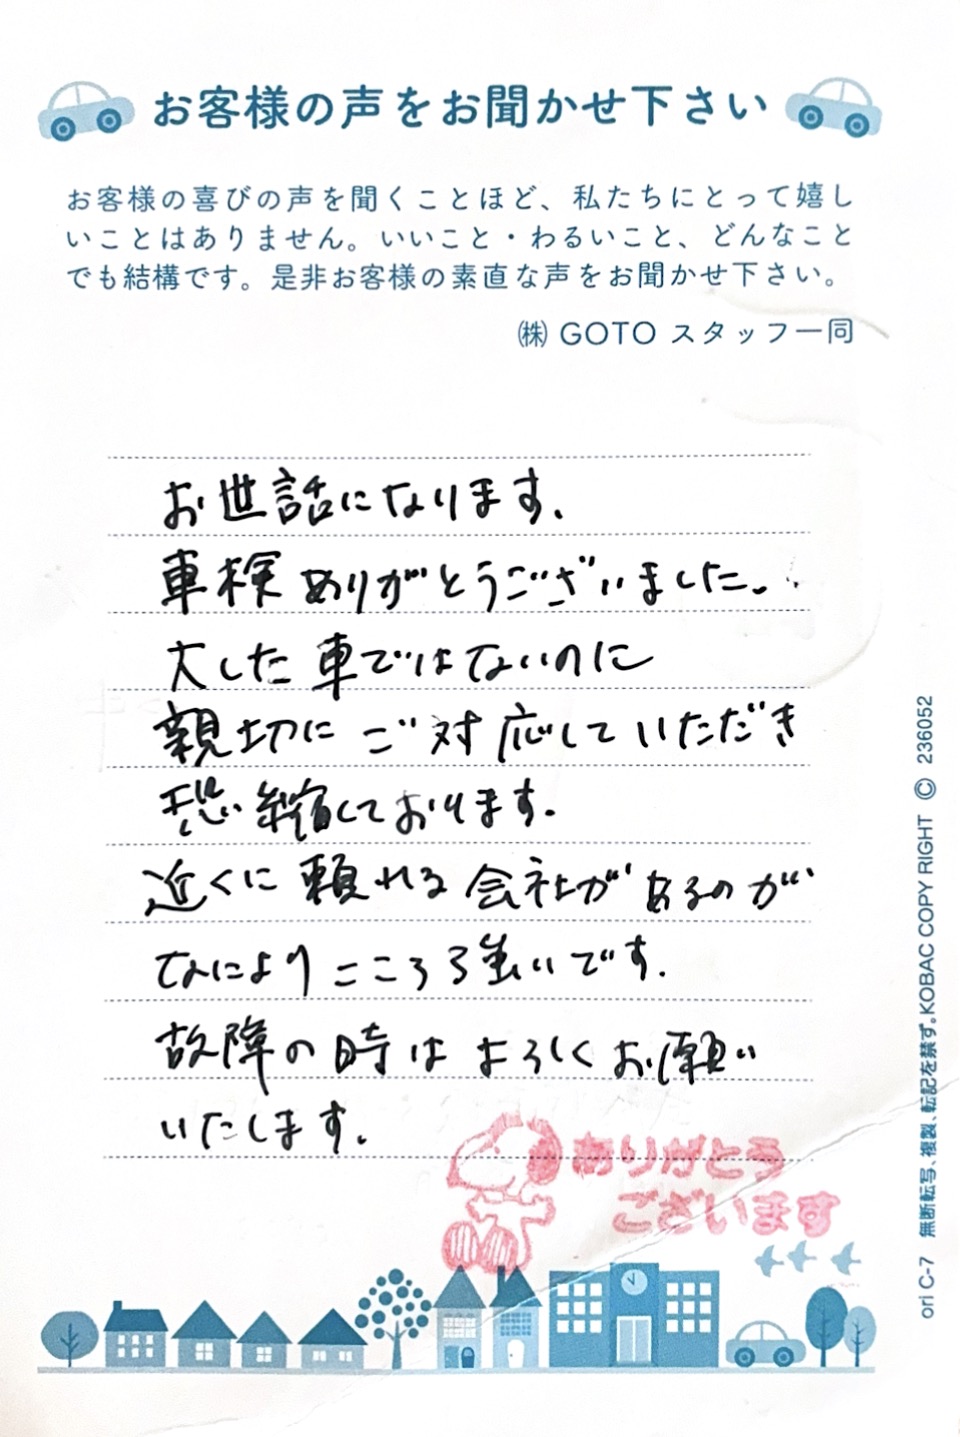 お客様の声をお聞かせ下さい
お客様の喜びの声を聞くことほど、私たちにとって嬉し
いことはありません。いいこと・わるいこと、どんなこと
でも結構です。是非お客様の素直な声をお聞かせ下さい。
㈱ GOTO スタッフ一同
お世話になります.
車検ありがとうございました。
大した車ではないのに
親切にご対応していただき
恐縮しております.
近くに頼れる会社があるのが
なによりこころ強いです.
故障の時はよろしくお願い
いたします.
ありがとう
ございます
ori C-7 無断転写、複製、転記を禁ず。KOBAC COPY RIGHT © 236052